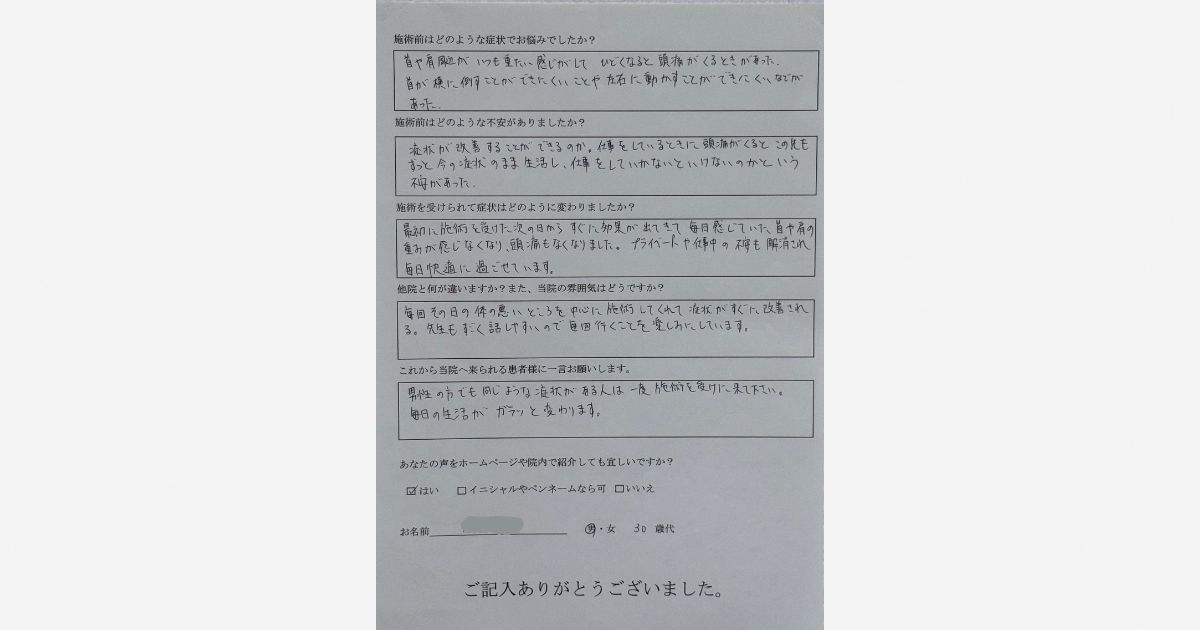 施術前はどのような症状でお悩みでしたか？
首や肩周辺が いつも重たい感じがして ひどくなると 頭痛がくるときがあった。
首が横に倒すことができにくいことや左右に動かすことができにくいなどが
あった。
施術前はどのような不安がありましたか？
症状が改善することができるのか。仕事をしているときに頭痛がくると この先も
ずっと今の症状のまま生活し、仕事をしていかないといけないのかという
不安があった。
施術を受けられて症状はどのように変わりましたか？
最初に施術を受けた次の日から すぐに効果が出てきて 毎日感じていた、首や肩の
重みが感じなくなり、頭痛もなくなりました。プライベートや仕事中の不安も解消され
毎日快適に過ごせています。
他院と何が違いますか？また、当院の雰囲気はどうですか？
毎回その日の体の悪いところを中心に施術してくれて症状がすぐに改善され
る。先生もすごく話しやすいので毎回行くことを楽しみにしています。
これから当院へ来られる患者様に一言お願いします。
男性の方でも同じような症状がある人は一度施術を受けに来て下さい。
毎日の生活がガラッと変わります。
あなたの声をホームページや院内で紹介しても宜しいですか？
☑はい □イニシャルやペンネームなら可 □いいえ
お名前 男・女 30 歳代
ご記入ありがとうございました。